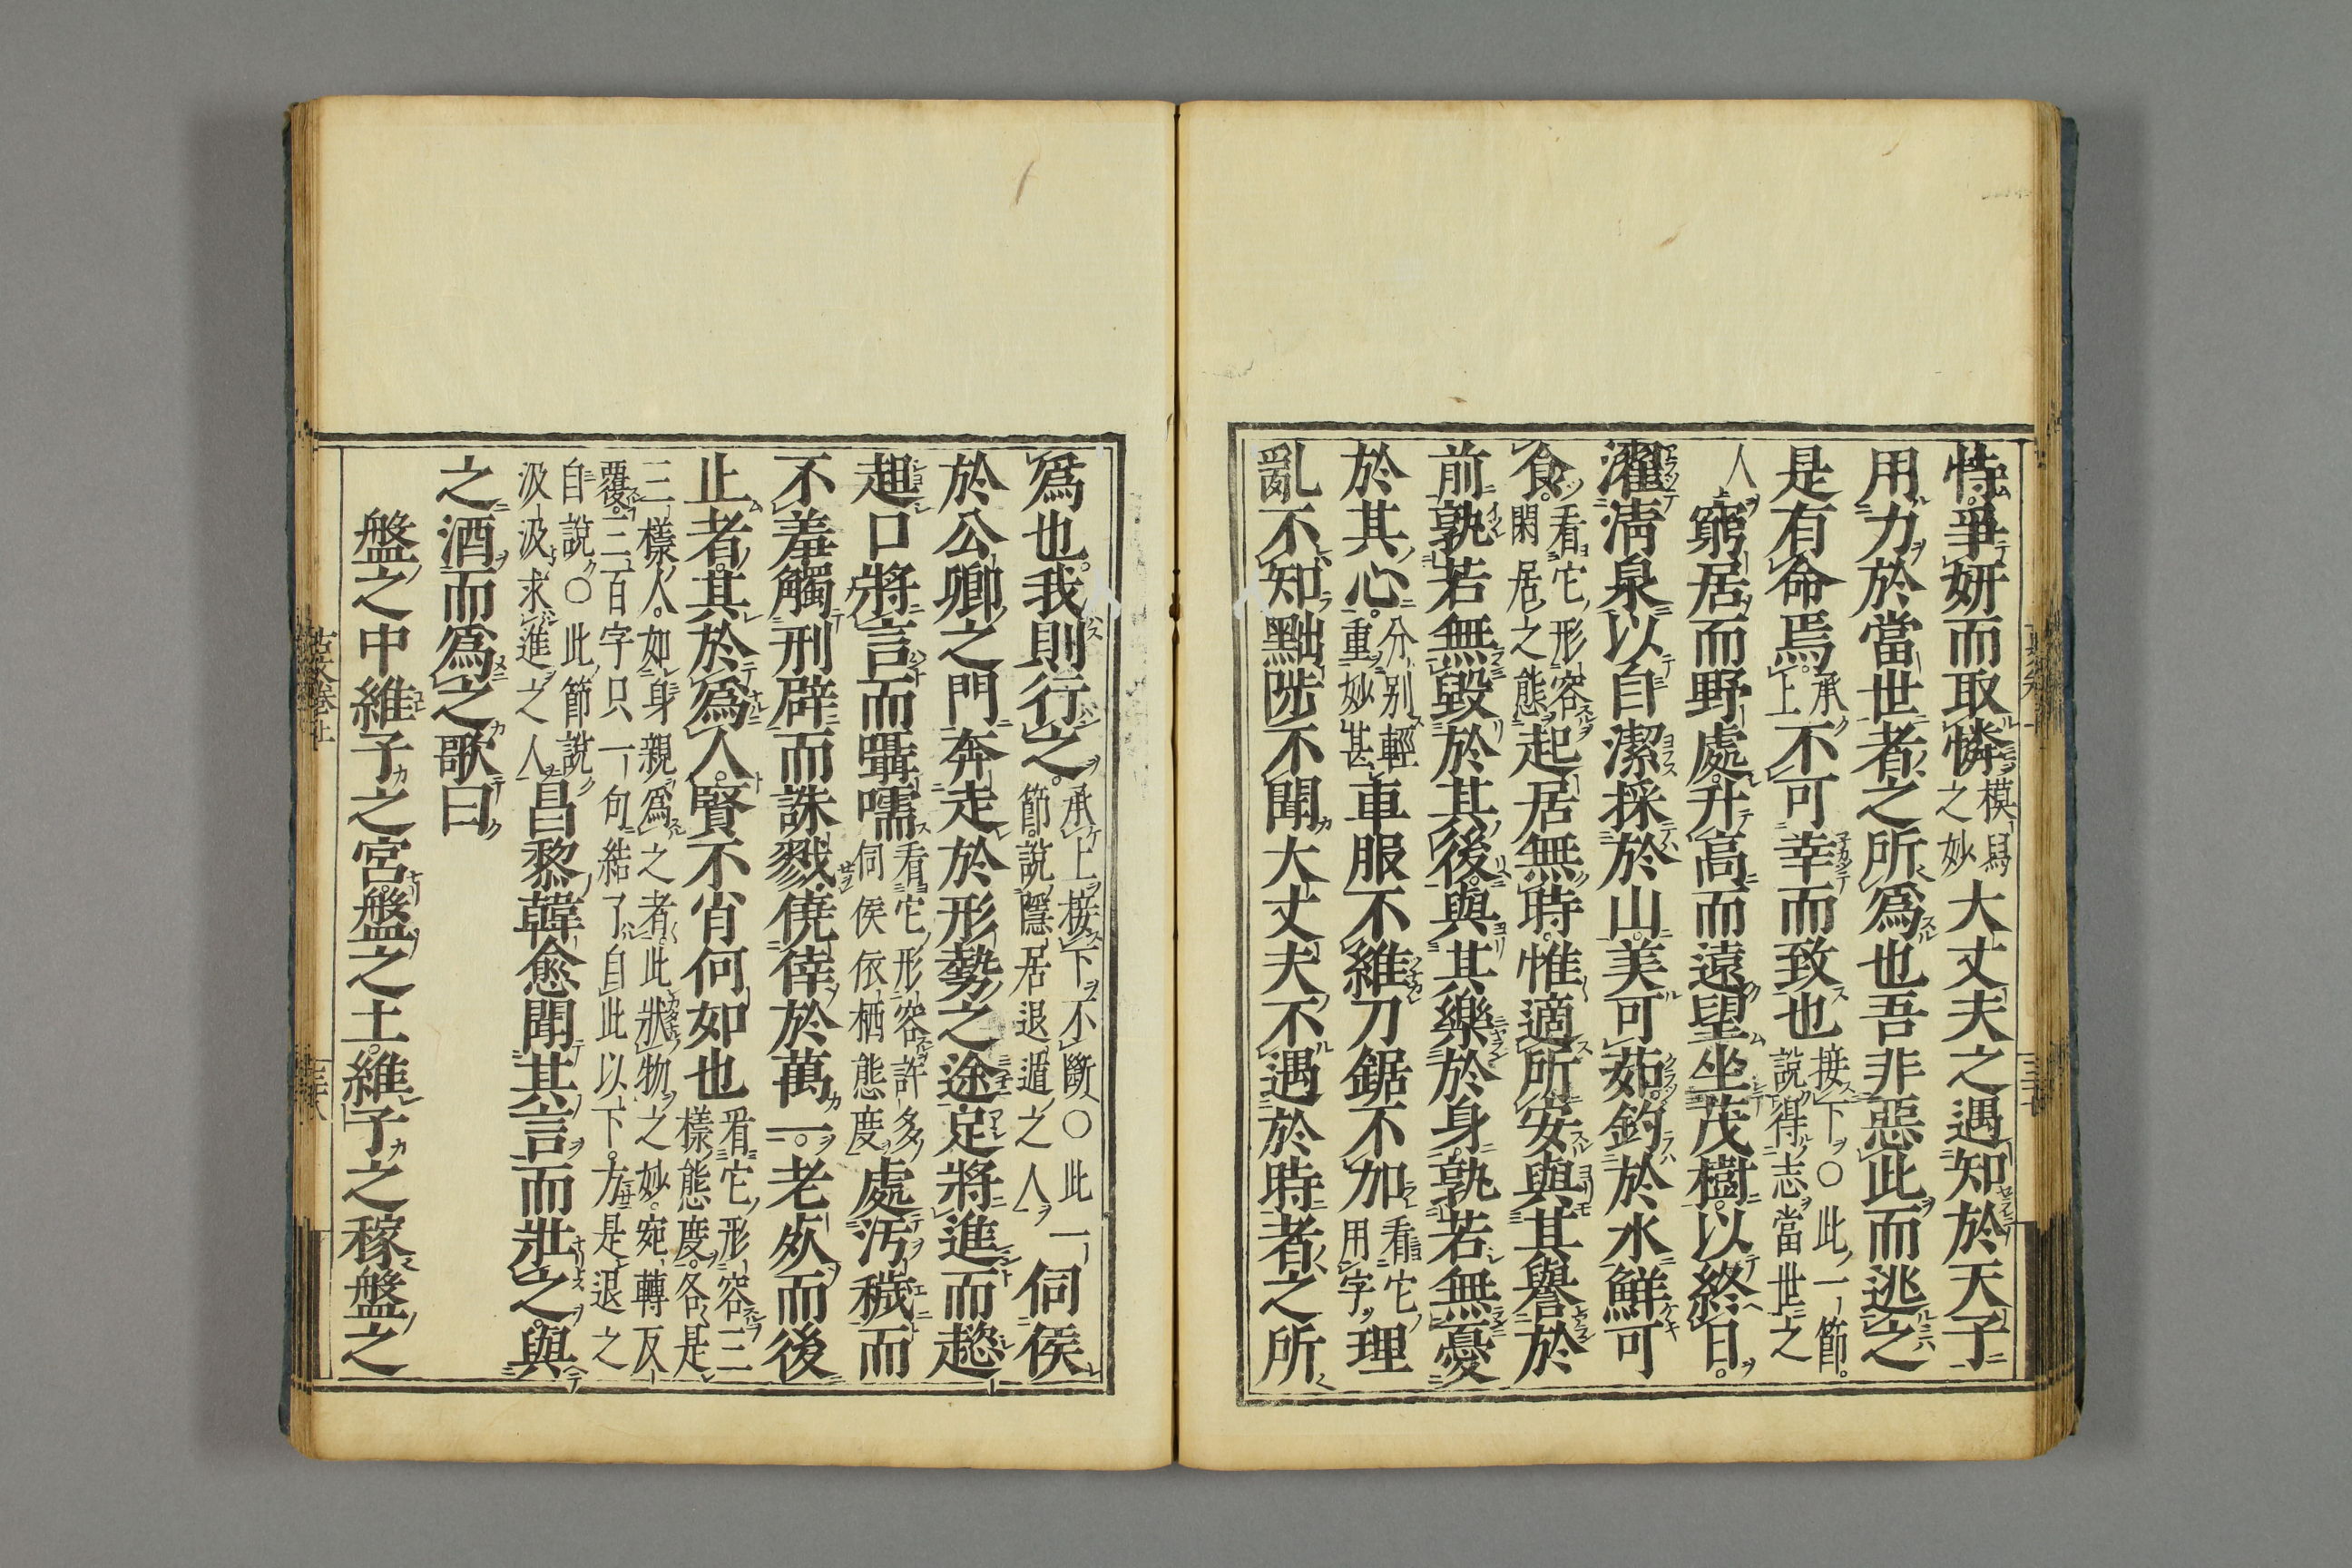 恃爭妍而取憐模寫之妙大丈夫之遇知於天子
用力於當世者之所爲也吾非惡此而逃之
是有命焉承上不可幸而致也接下○此一節說得志當世之
人窮居而野處升高而遠望坐茂樹以終日
濯淸泉以自潔採於山美可茹釣於水鮮可
食看它形容閑居之態起居無時惟適所安與其譽於
前孰若無毀於其後與其樂於身孰若無憂
於其心分別輕重妙甚車服不維刀鋸不加看它用字理
亂不知黜陟不聞大丈夫不遇於時者之所
爲也我則行之承上接下不斷○此一節說隱居退遁之人伺侯
於公卿之門奔走於形勢之途足將進而趦
趄口將言而囁嚅看它形容許多伺侯依栖態度處汚穢而
不羞觸刑辟而誅戮僥倖於萬一老死而後
止者其於爲人賢不肖何如也看它形容三樣態度各是
三樣人如身親爲之者此狀物之妙宛轉反
覆三百字只一句結了自此以下方是退之
自說○此節說汲汲求進之人昌黎韓愈聞其言而壯之與
之酒而爲之歌曰
盤之中維子之宮盤之土維子之稼盤之
古文卷上
三六